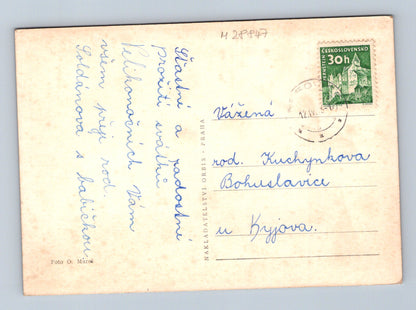 M 28947
Šťastné a radostné
prožití svátků
Velikonočních Vám
všem přeje rod.
Soldánova s babičkou.
Foto O. Mareš
NAKLADATELSTVÍ ORBIS - PRAHA
ČESKOSLOVENSKO
30h
Vážená
rod. Kuchynkova
Bohuslavice
u Kyjova.